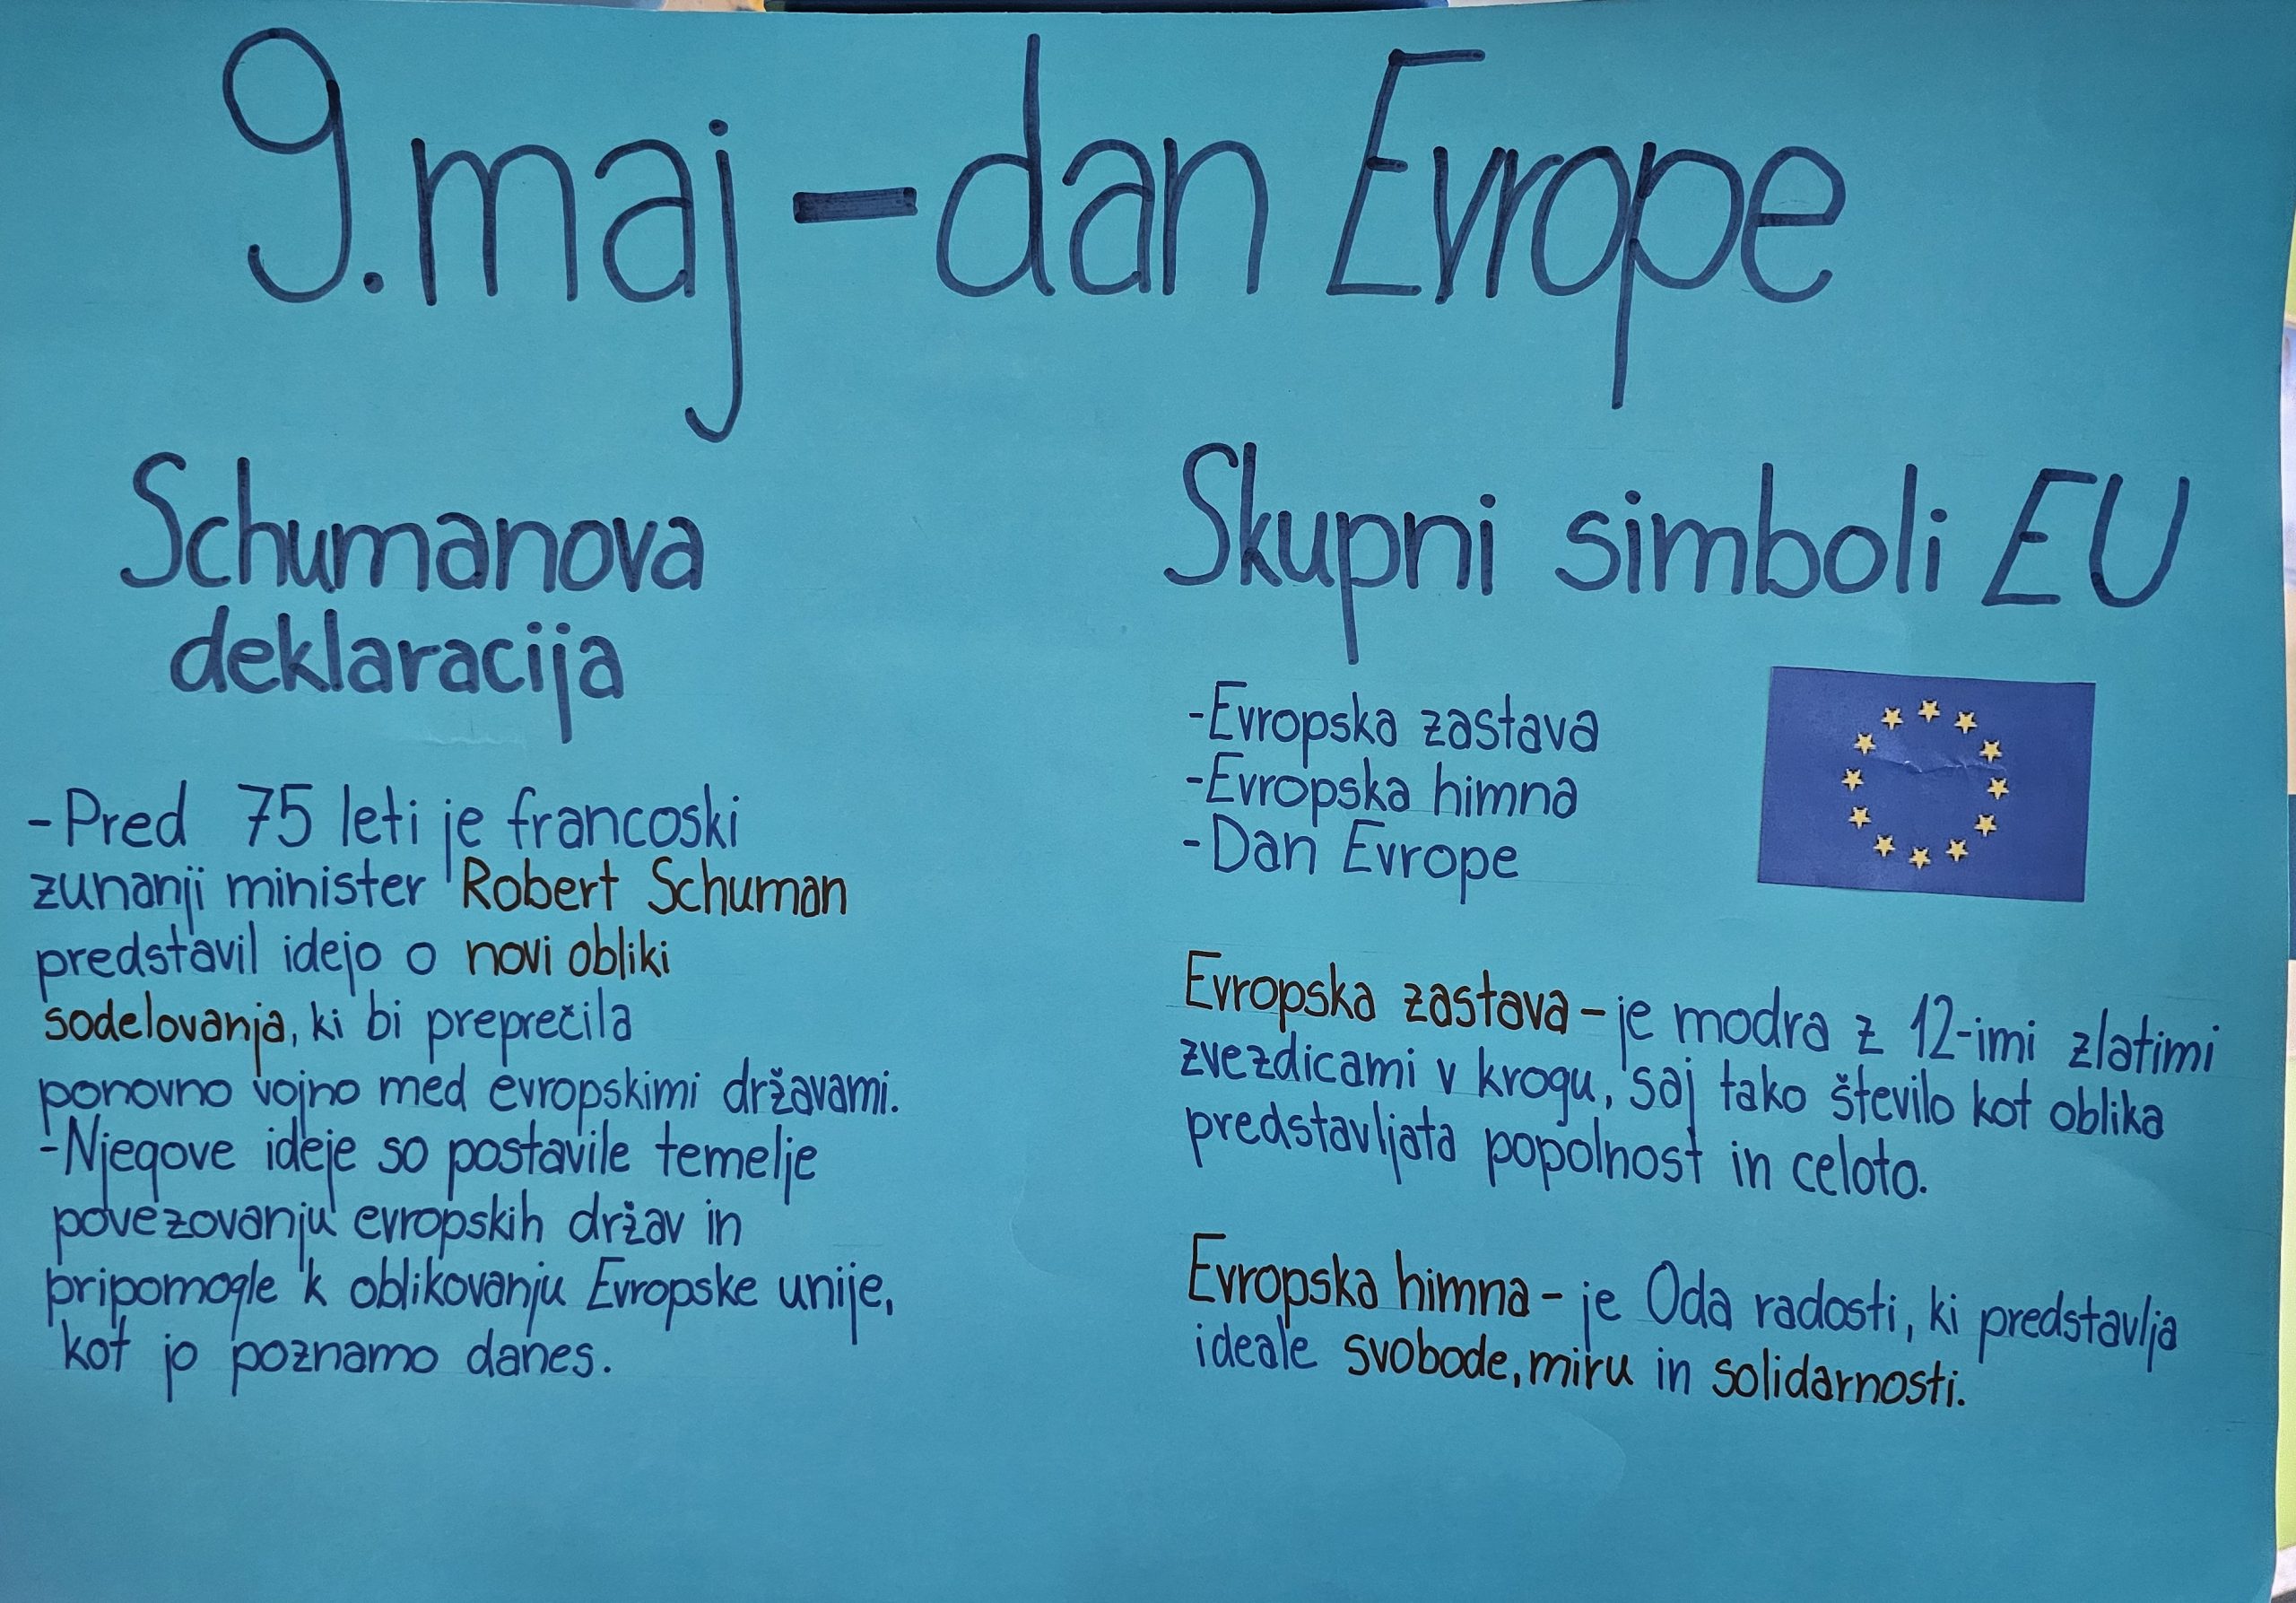 9. maj - dan Evrope
Schumanova
deklaracija
- Pred 75 leti je francoski
zunanji minister Robert Schuman
predstavil idejo o novi obliki
sodelovanja, ki bi preprečila
ponovno vojno med evropskimi državami.
- Njegove ideje so postavile temelje
povezovanju evropskih držav in
pripomogle k oblikovanju Evropske unije,
kot jo poznamo danes.
Skupni simboli EU
- Evropska zastava
- Evropska himna
- Dan Evrope
Evropska zastava - je modra z 12-imi zlatimi
zvezdicami v krogu, saj tako število kot oblika
predstavljata popolnost in celoto.
Evropska himna - je Oda radosti, ki predstavlja
ideale svobode, miru in solidarnosti.